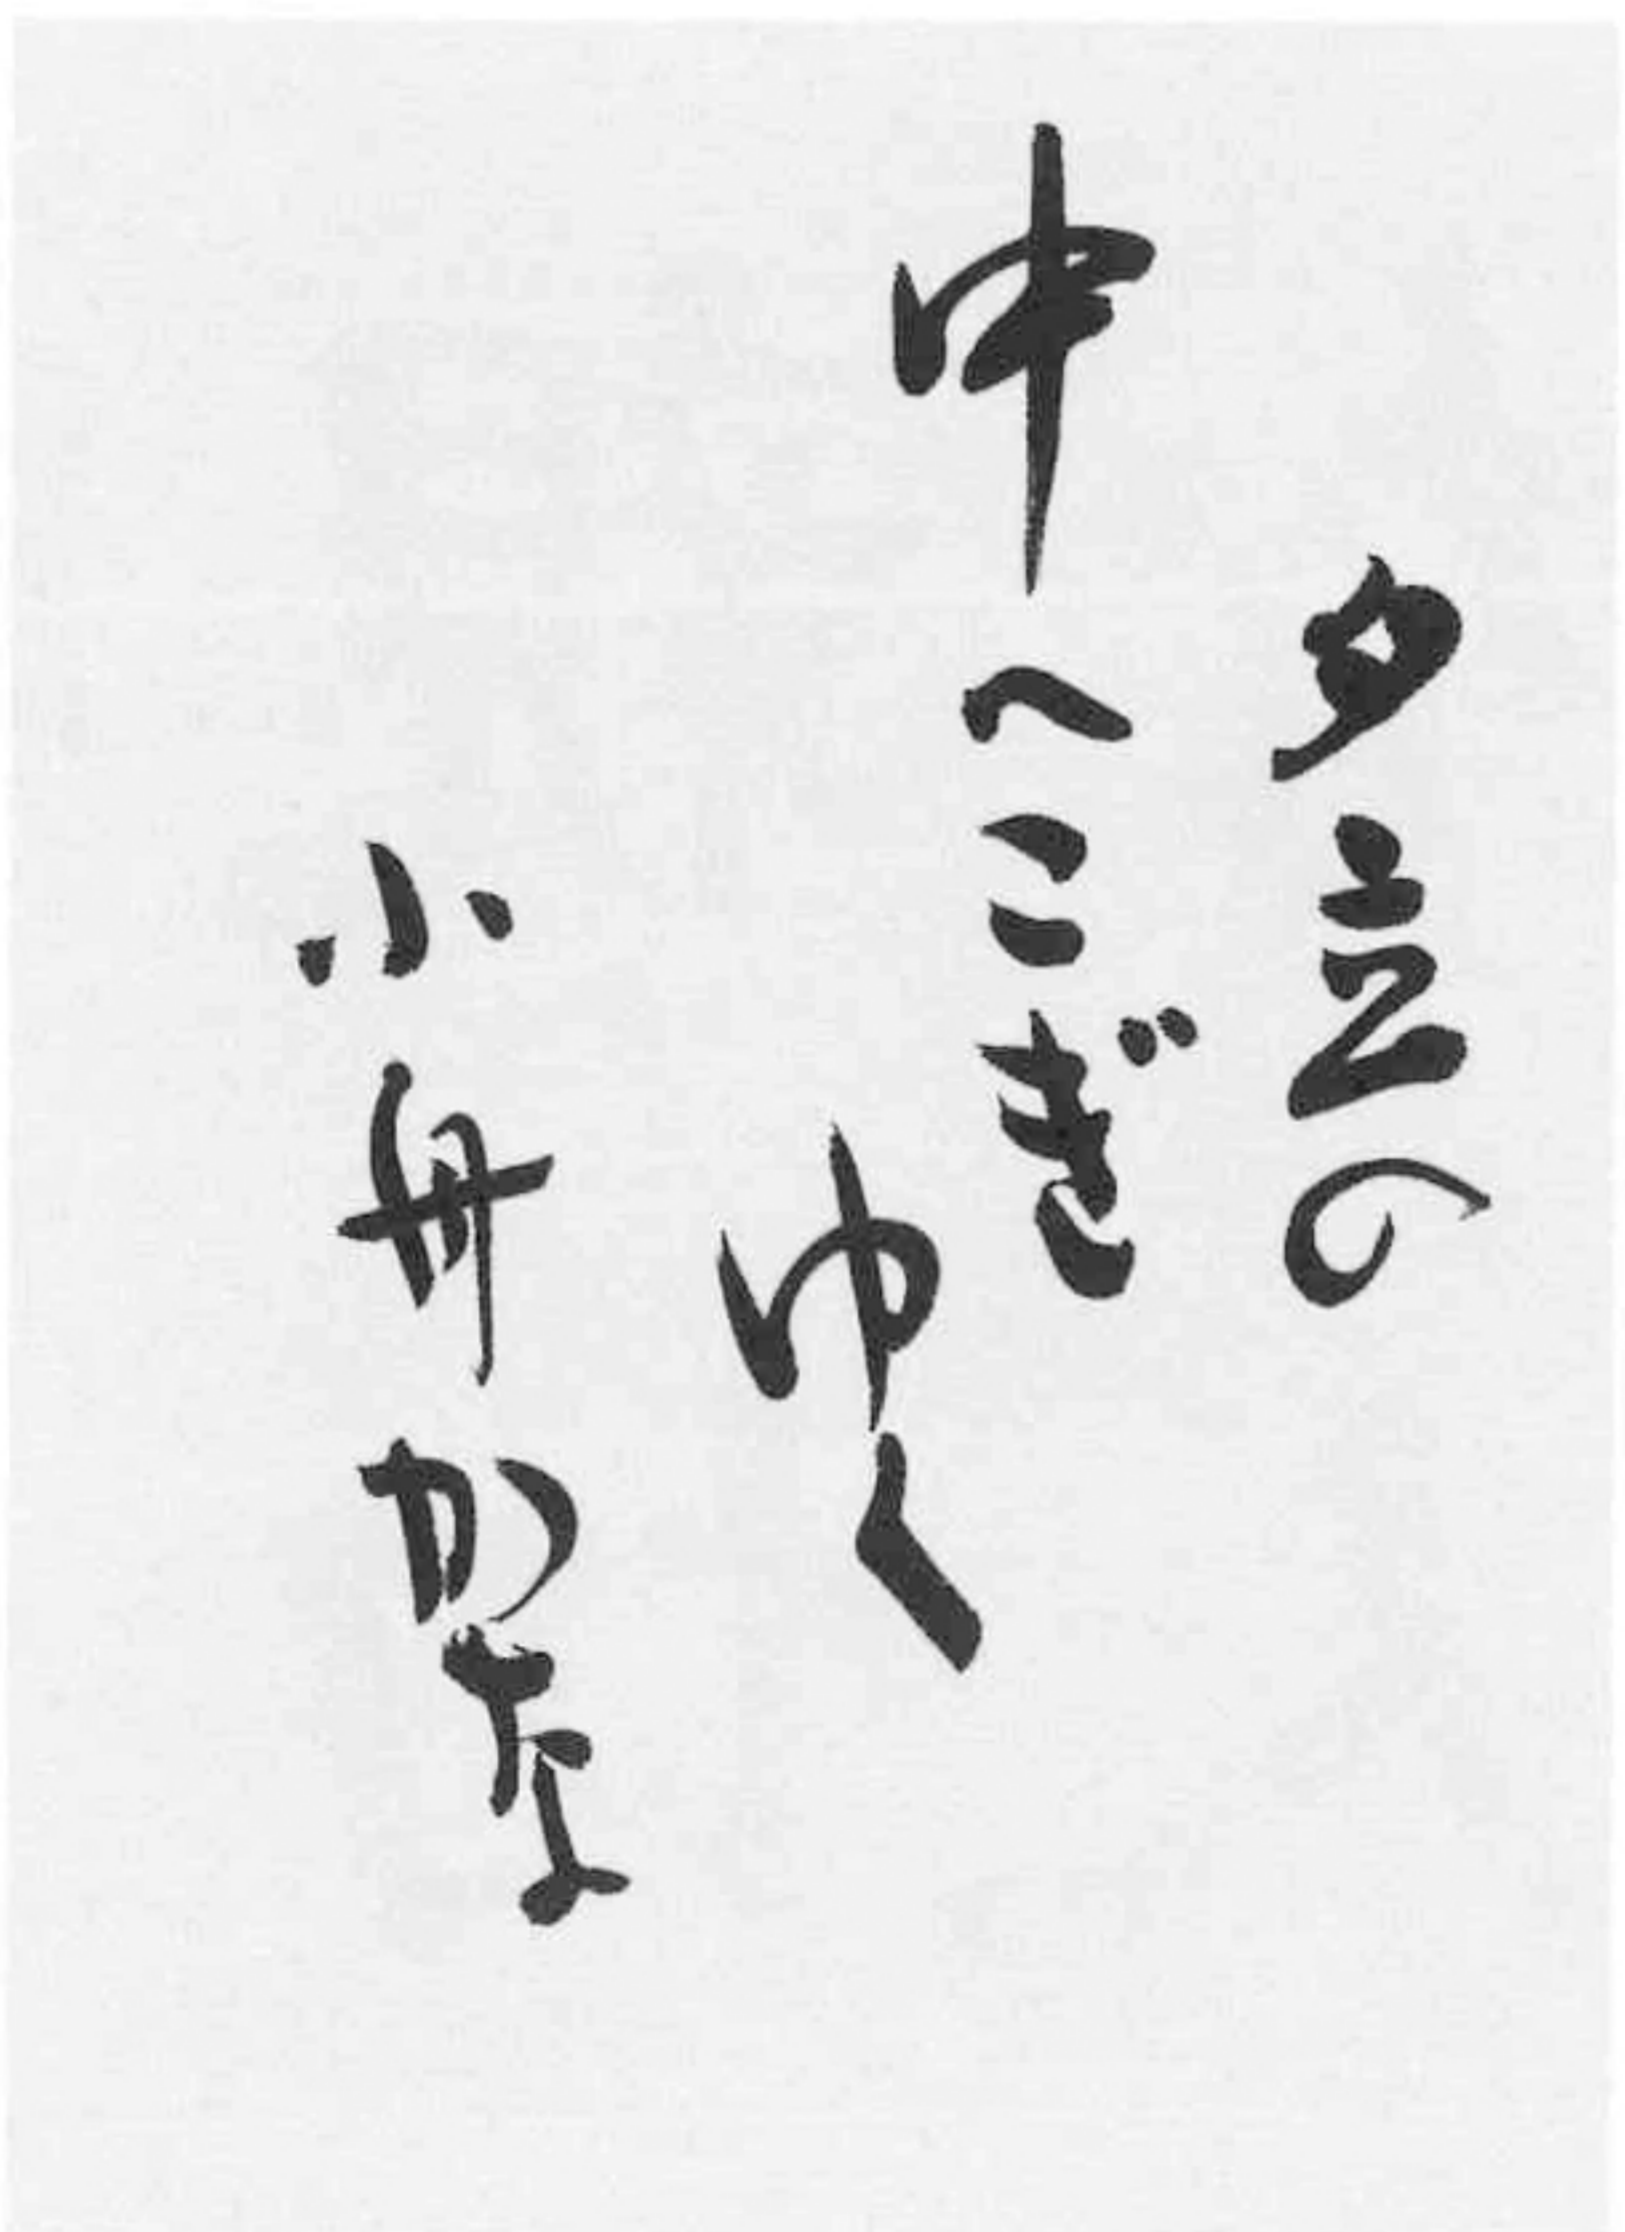 夕立の
中へこぎ
ゆく
小舟かな